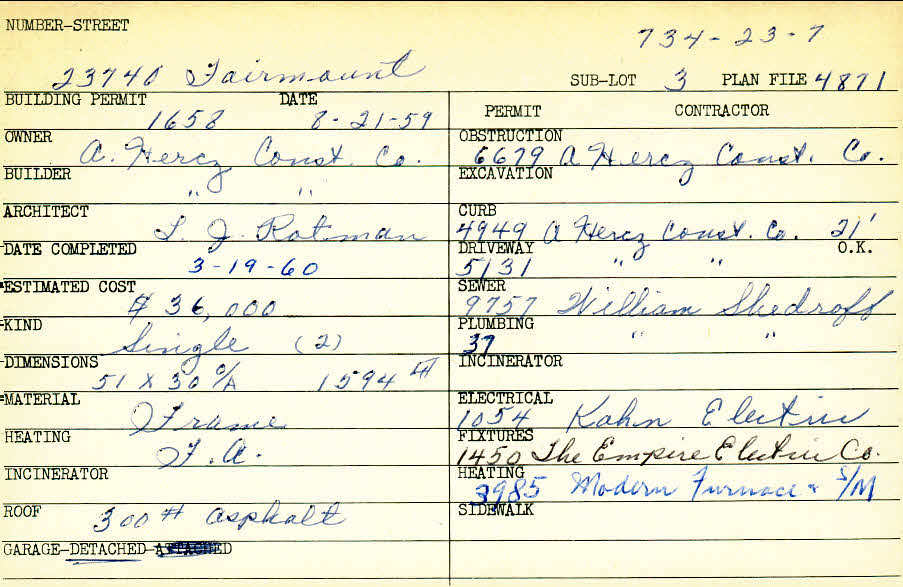 NUMBER-STREET
734-23-7
23740 Fairmount
SUB-LOT 3 PLAN FILE 4871
BUILDING PERMIT DATE
1658 8-21-59
OWNER
A. Hercz Const. Co.
BUILDER
" "
ARCHITECT
L. J. Rotman
DATE COMPLETED
3-19-60
ESTIMATED COST
$ 36,000
KIND
Single (2)
DIMENSIONS
51 X 30 O/A 1594
MATERIAL
Frame
HEATING
F. A.
INCINERATOR
ROOF 300 # asphalt
GARAGE-DETACHED-ATTACHED
PERMIT CONTRACTOR
OBSTRUCTION
6679 A Hercz Const. Co.
EXCAVATION
CURB
4949 A Hercz Const. Co. 21'
DRIVEWAY O.K.
5131 " "
SEWER
9757 William Shedroff
PLUMBING " "
37
INCINERATOR
ELECTRICAL
1054 Kahn Electric
FIXTURES
1450 The Empire Electric Co.
HEATING
3985 Modern Furnace & S/M
SIDEWALK